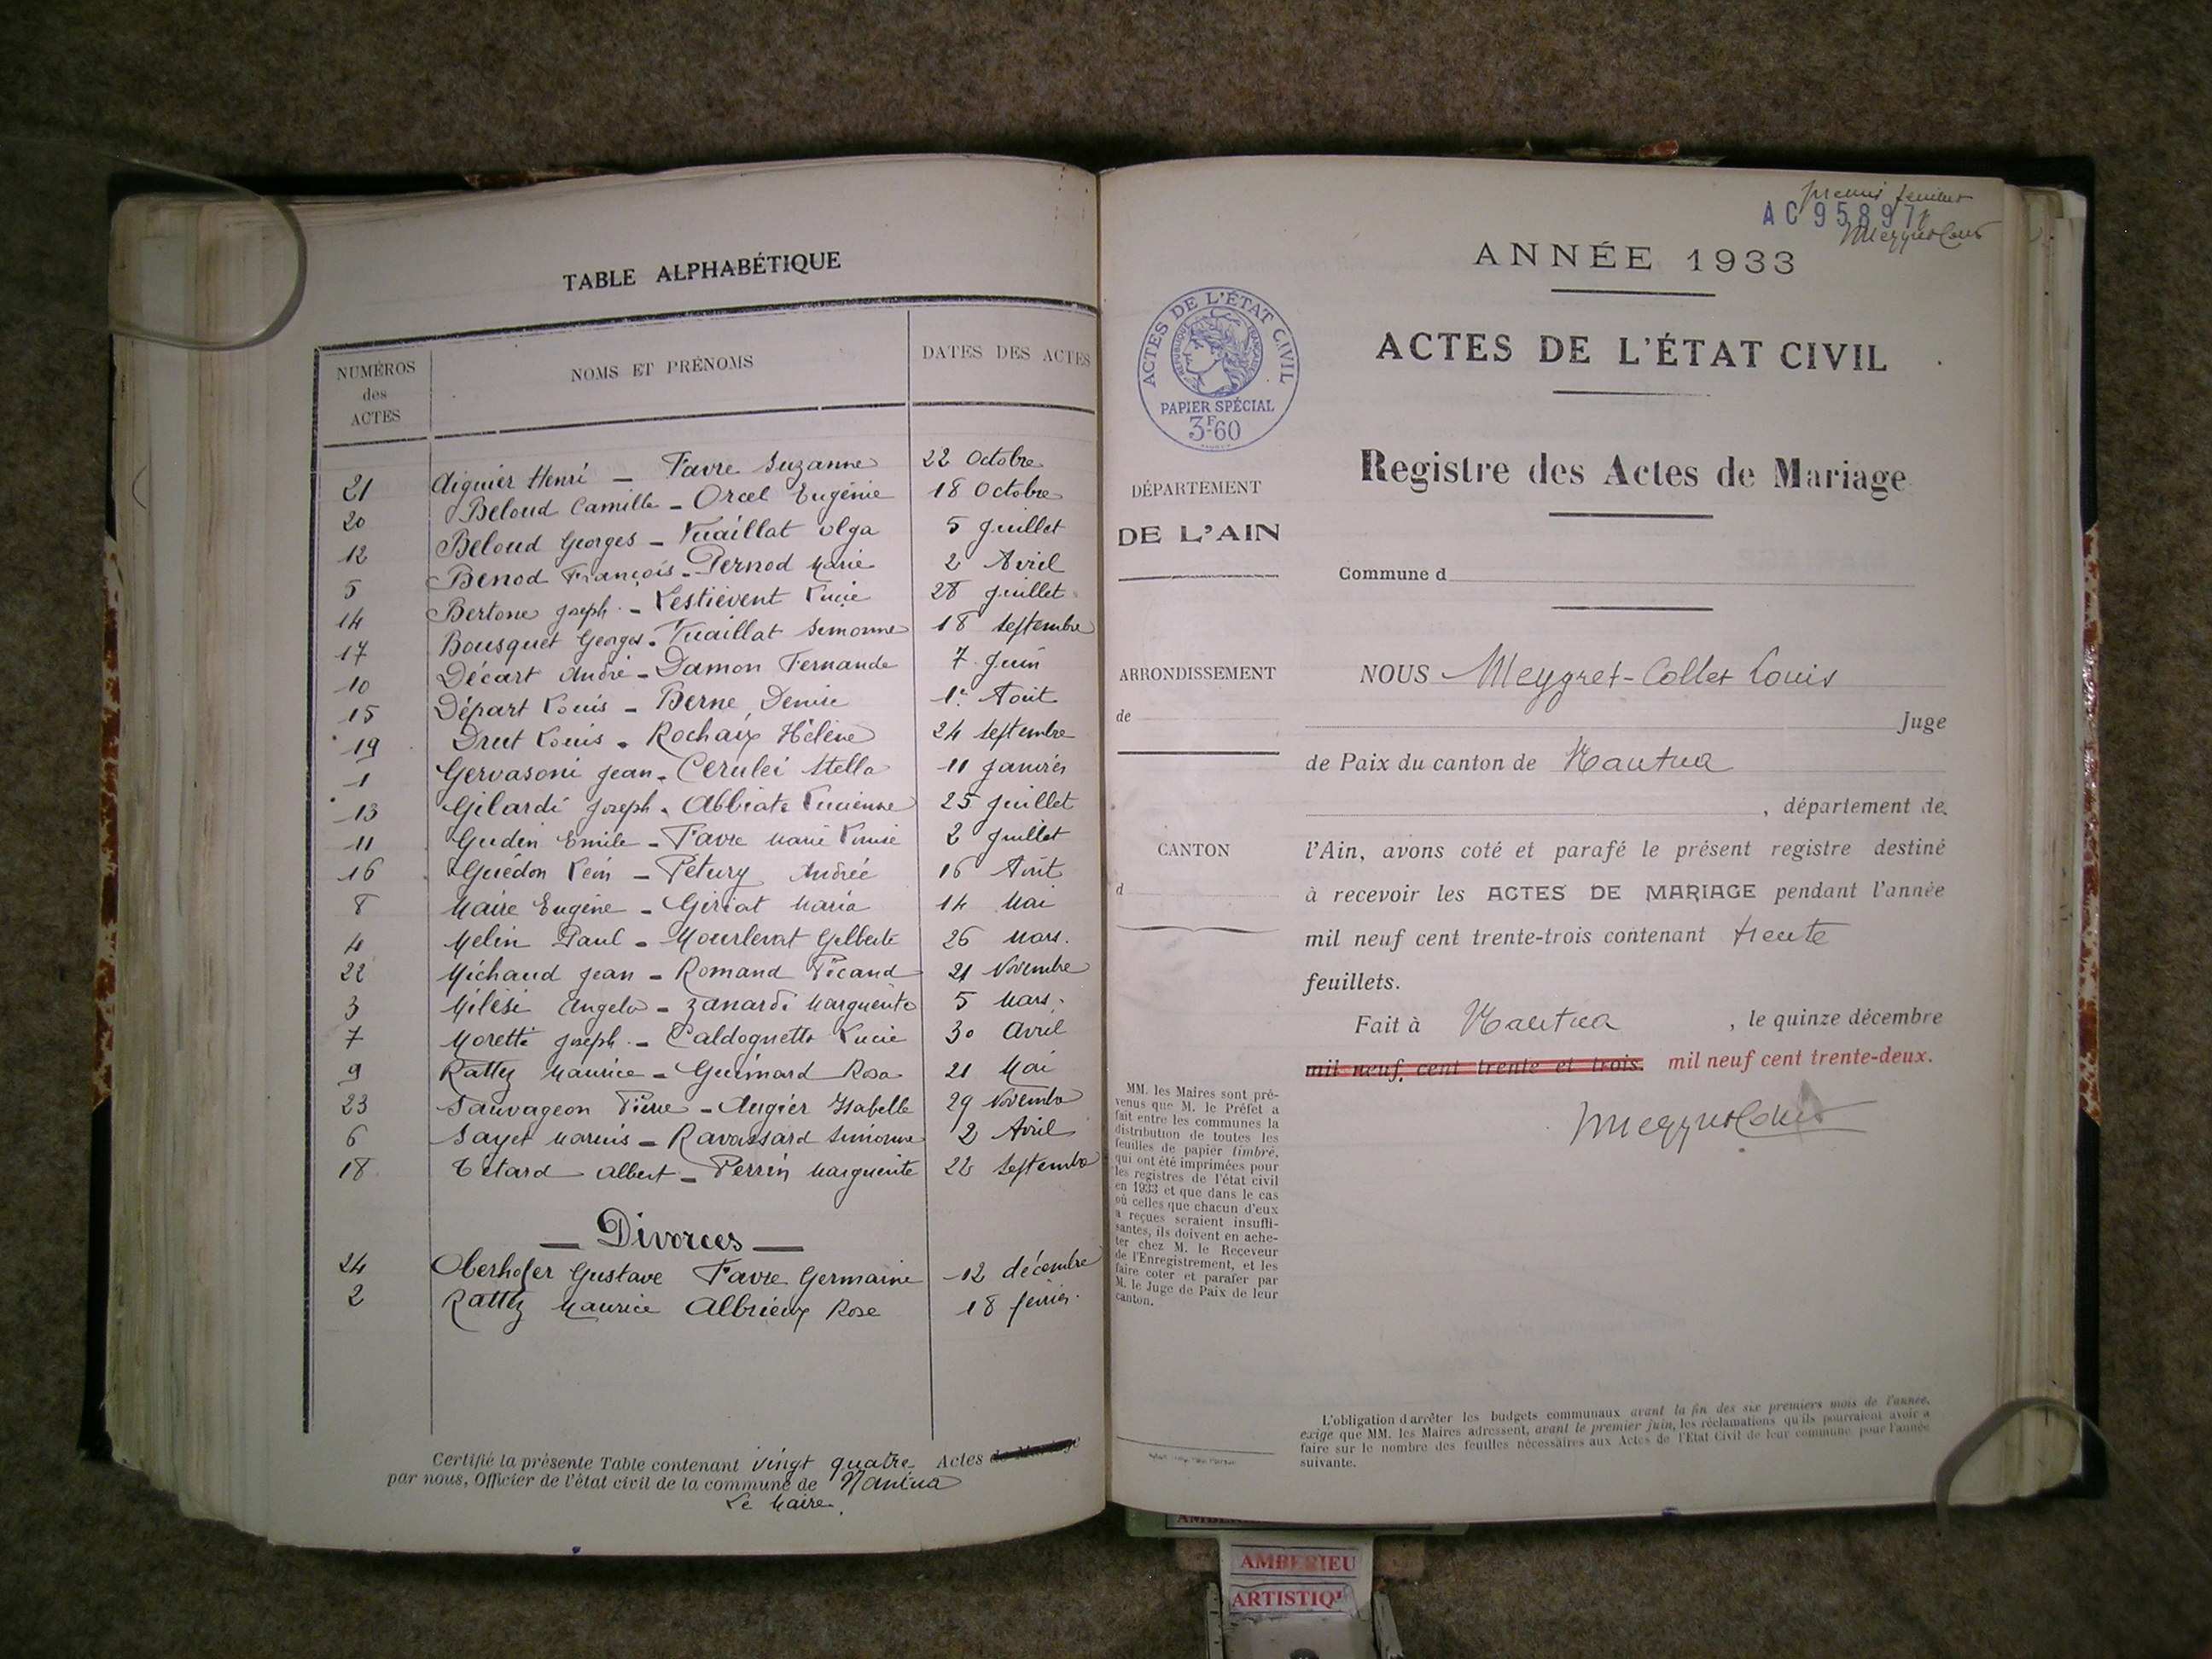 TABLE ALPHABÉTIQUE
NUMÉROS des ACTES NOMS ET PRÉNOMS DATES DES ACTES
21 Aiguier Henri — Favre Suzanne 22 Octobre
20 Beloud Camille - Orcel Eugénie 18 Octobre
12 Beloud Georges - Vuaillat Olga 5 Juillet
5 Benod François - Pernod Marie 2 Avril
14 Bertone Joseph - Lestievent Lucie 28 Juillet
17 Bousquet Georges - Vuaillat Simonne 18 septembre
10 Décart André - Damon Fernande 7 Juin
15 Départ Louis - Berne Denise 1er Août
19 Drut Louis - Rochaix Hélène 24 septembre
1 Gervasoni Jean - Cerulei Stella 11 Janvier
13 Gilardi Joseph - Abbiate Lucienne 25 Juillet
11 Gudin Emile - Favre Marie Louise 2 Juillet
16 Guédon Léon - Pétury Andrée 16 Août
8 Maire Eugène - Giriat Maria 14 Mai
4 Melin Paul - Mourlevat Gilberte 26 Mars.
22 Michaud Jean - Romand Picand 21 Novembre
3 Milési Angelo - Zanardi Marguerite 5 Mars.
7 Moretti Joseph - Caldognetto Lucie 30 Avril
9 Rattez Maurice - Guimard Rosa 21 Mai
23 Sauvageon Pierre - Augier Isabelle 29 Novembre
6 Sayet Marius - Ravassard Simonne 2 Avril
18 Tétard Albert - Perrin Marguerite 22 septembre
— Divorces —
24 Oberhofer Gustave Favre Germaine 12 décembre
2 Rattez Maurice Albrieux Rose 18 février.
Certifié la présente Table contenant vingt quatre Actes de Mariage
par nous, Officier de l'état civil de la commune de Nantua
Le Maire.
premier feuillet
AC 95897
ANNÉE 1933
ACTES DE L'ÉTAT CIVIL
RÉPUBLIQUE FRANÇAISE
PAPIER SPÉCIAL
3F60
ACTES DE L'ÉTAT CIVIL
Registre des Actes de Mariage
DÉPARTEMENT
DE L'AIN
Commune d
ARRONDISSEMENT
de
CANTON
d
NOUS Meygret-Collet Louis
Juge
de Paix du canton de Nantua
, département de
l'Ain, avons coté et parafé le présent registre destiné
à recevoir les ACTES DE MARIAGE pendant l'année
mil neuf cent trente-trois contenant trente
feuillets.
Fait à Nantua, le quinze décembre
mil neuf cent trente et trois. mil neuf cent trente-deux.
MM. les Maires sont pré-
venus que M. le Préfet a
fait entre les communes la
distribution de toutes les
feuilles de papier timbré,
qui ont été imprimées pour
les registres de l'état civil
en 1933 et que dans le cas
où celles que chacun d'eux
a reçues seraient insuffi-
santes, ils doivent en ache-
ter chez M. le Receveur
de l'Enregistrement, et les
faire coter et parafer par
M. le Juge de Paix de leur
canton.
L'obligation d'arrêter les budgets communaux avant la fin des six premiers mois de l'année,
exige que MM. les Maires adressent, avant le premier juin, les réclamations qu'ils pourraient avoir à
faire sur le nombre des feuilles nécessaires aux Actes de l'Etat Civil de leur commune pour l'année
suivante.
AMBERIEU
ARTISTIQ